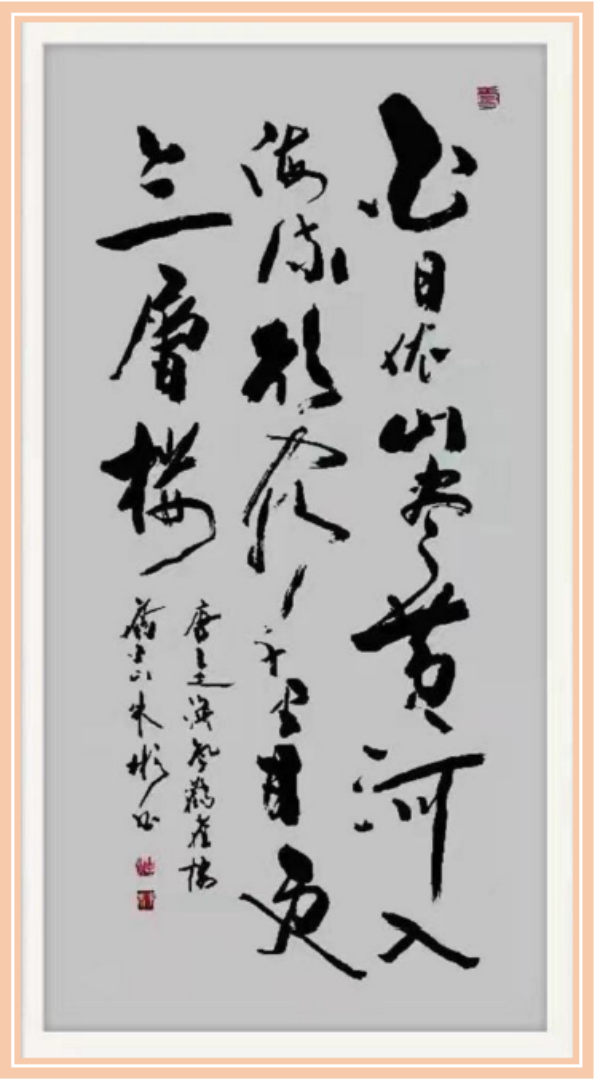 白日依山尽黄河入
海流欲穷千里目更
上一層楼
唐王之涣登鹳雀楼
朱彬书